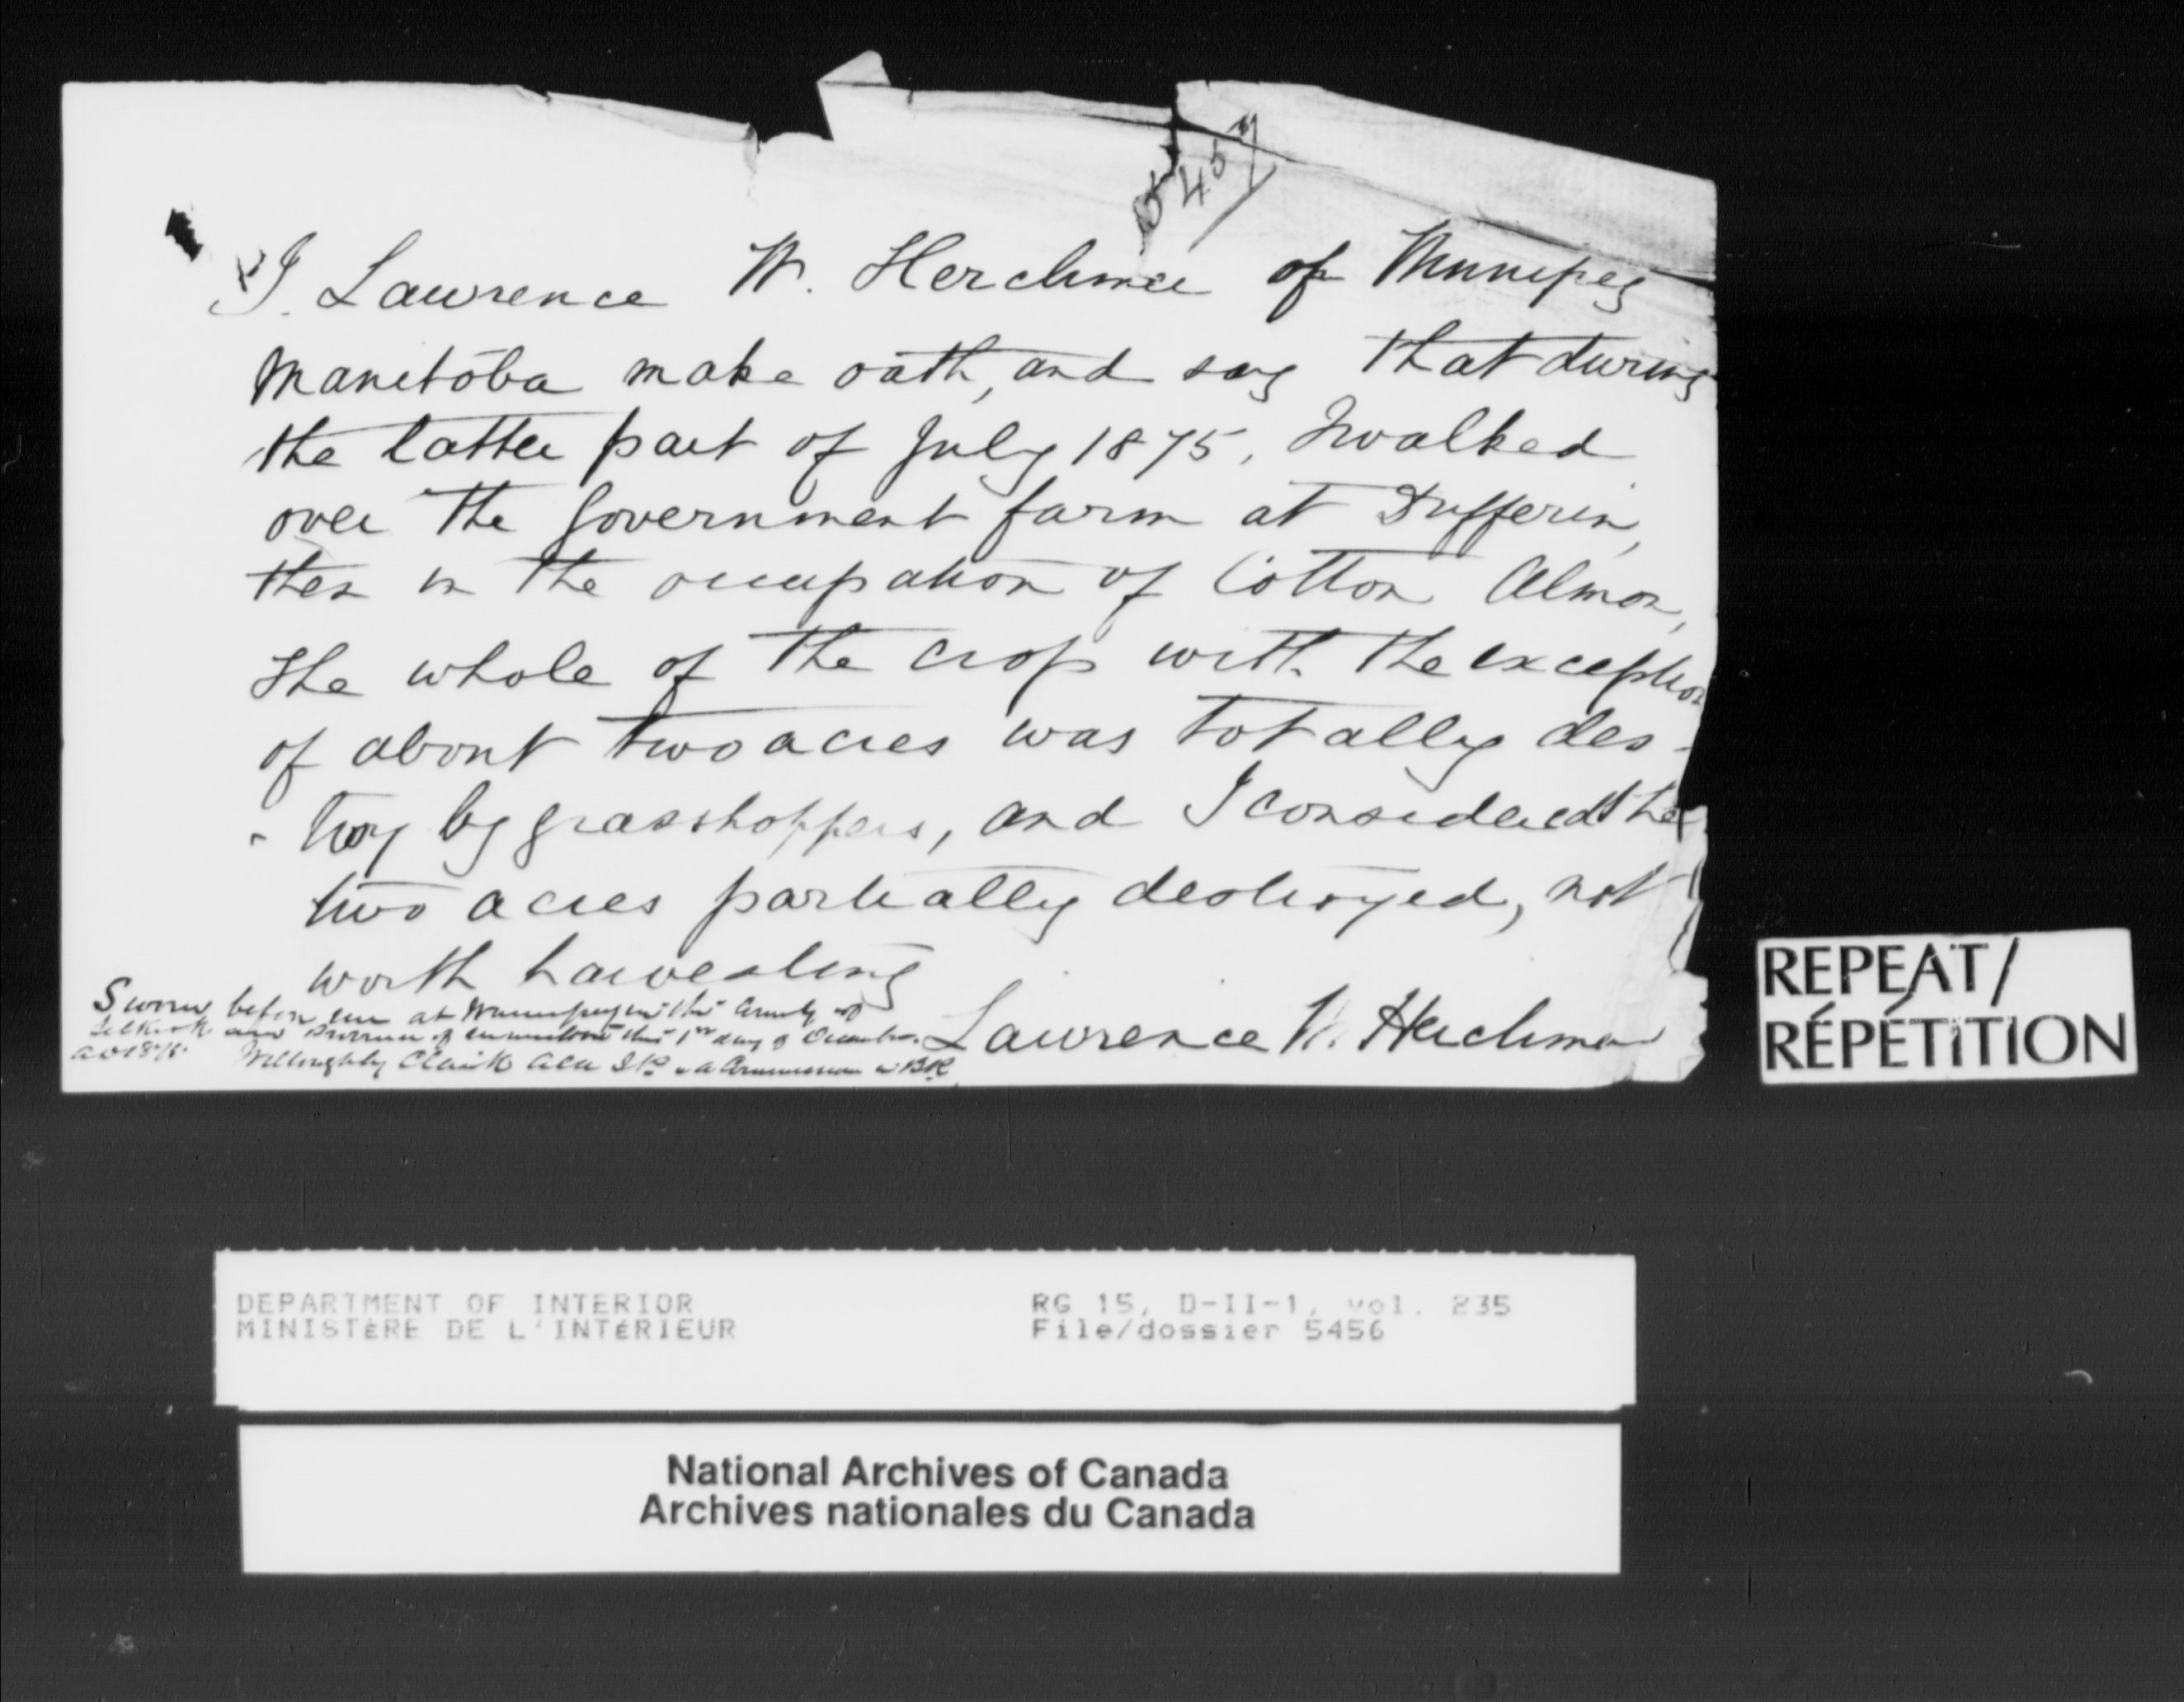 5457
I. Lawrence W. Herchmer of Winnipeg
Manitoba make oath, and say that during
the latter part of July 1875, I walked
over the Government farm at Dufferin,
then in the occupation of Cotton Almon,
The whole of the crop with the exception
of about two acres was totally des-
- troy by grasshoppers, and I considered the
two acres partially destroyed, not
worth harvesting
Sworn before me at Winnipeg in the County of
Selkirk and Province of Manitoba this 1st day of December
AD 187
Willoughby Clark a Commissioner in BR
Lawrence W. Herchmer
REPEAT/
RÉPÉTITION
DEPARTMENT OF INTERIOR
MINISTÈRE DE L'INTÉRIEUR
RG 15, D-II-1, vol. 235
File/dossier 5456
National Archives of Canada
Archives nationales du Canada